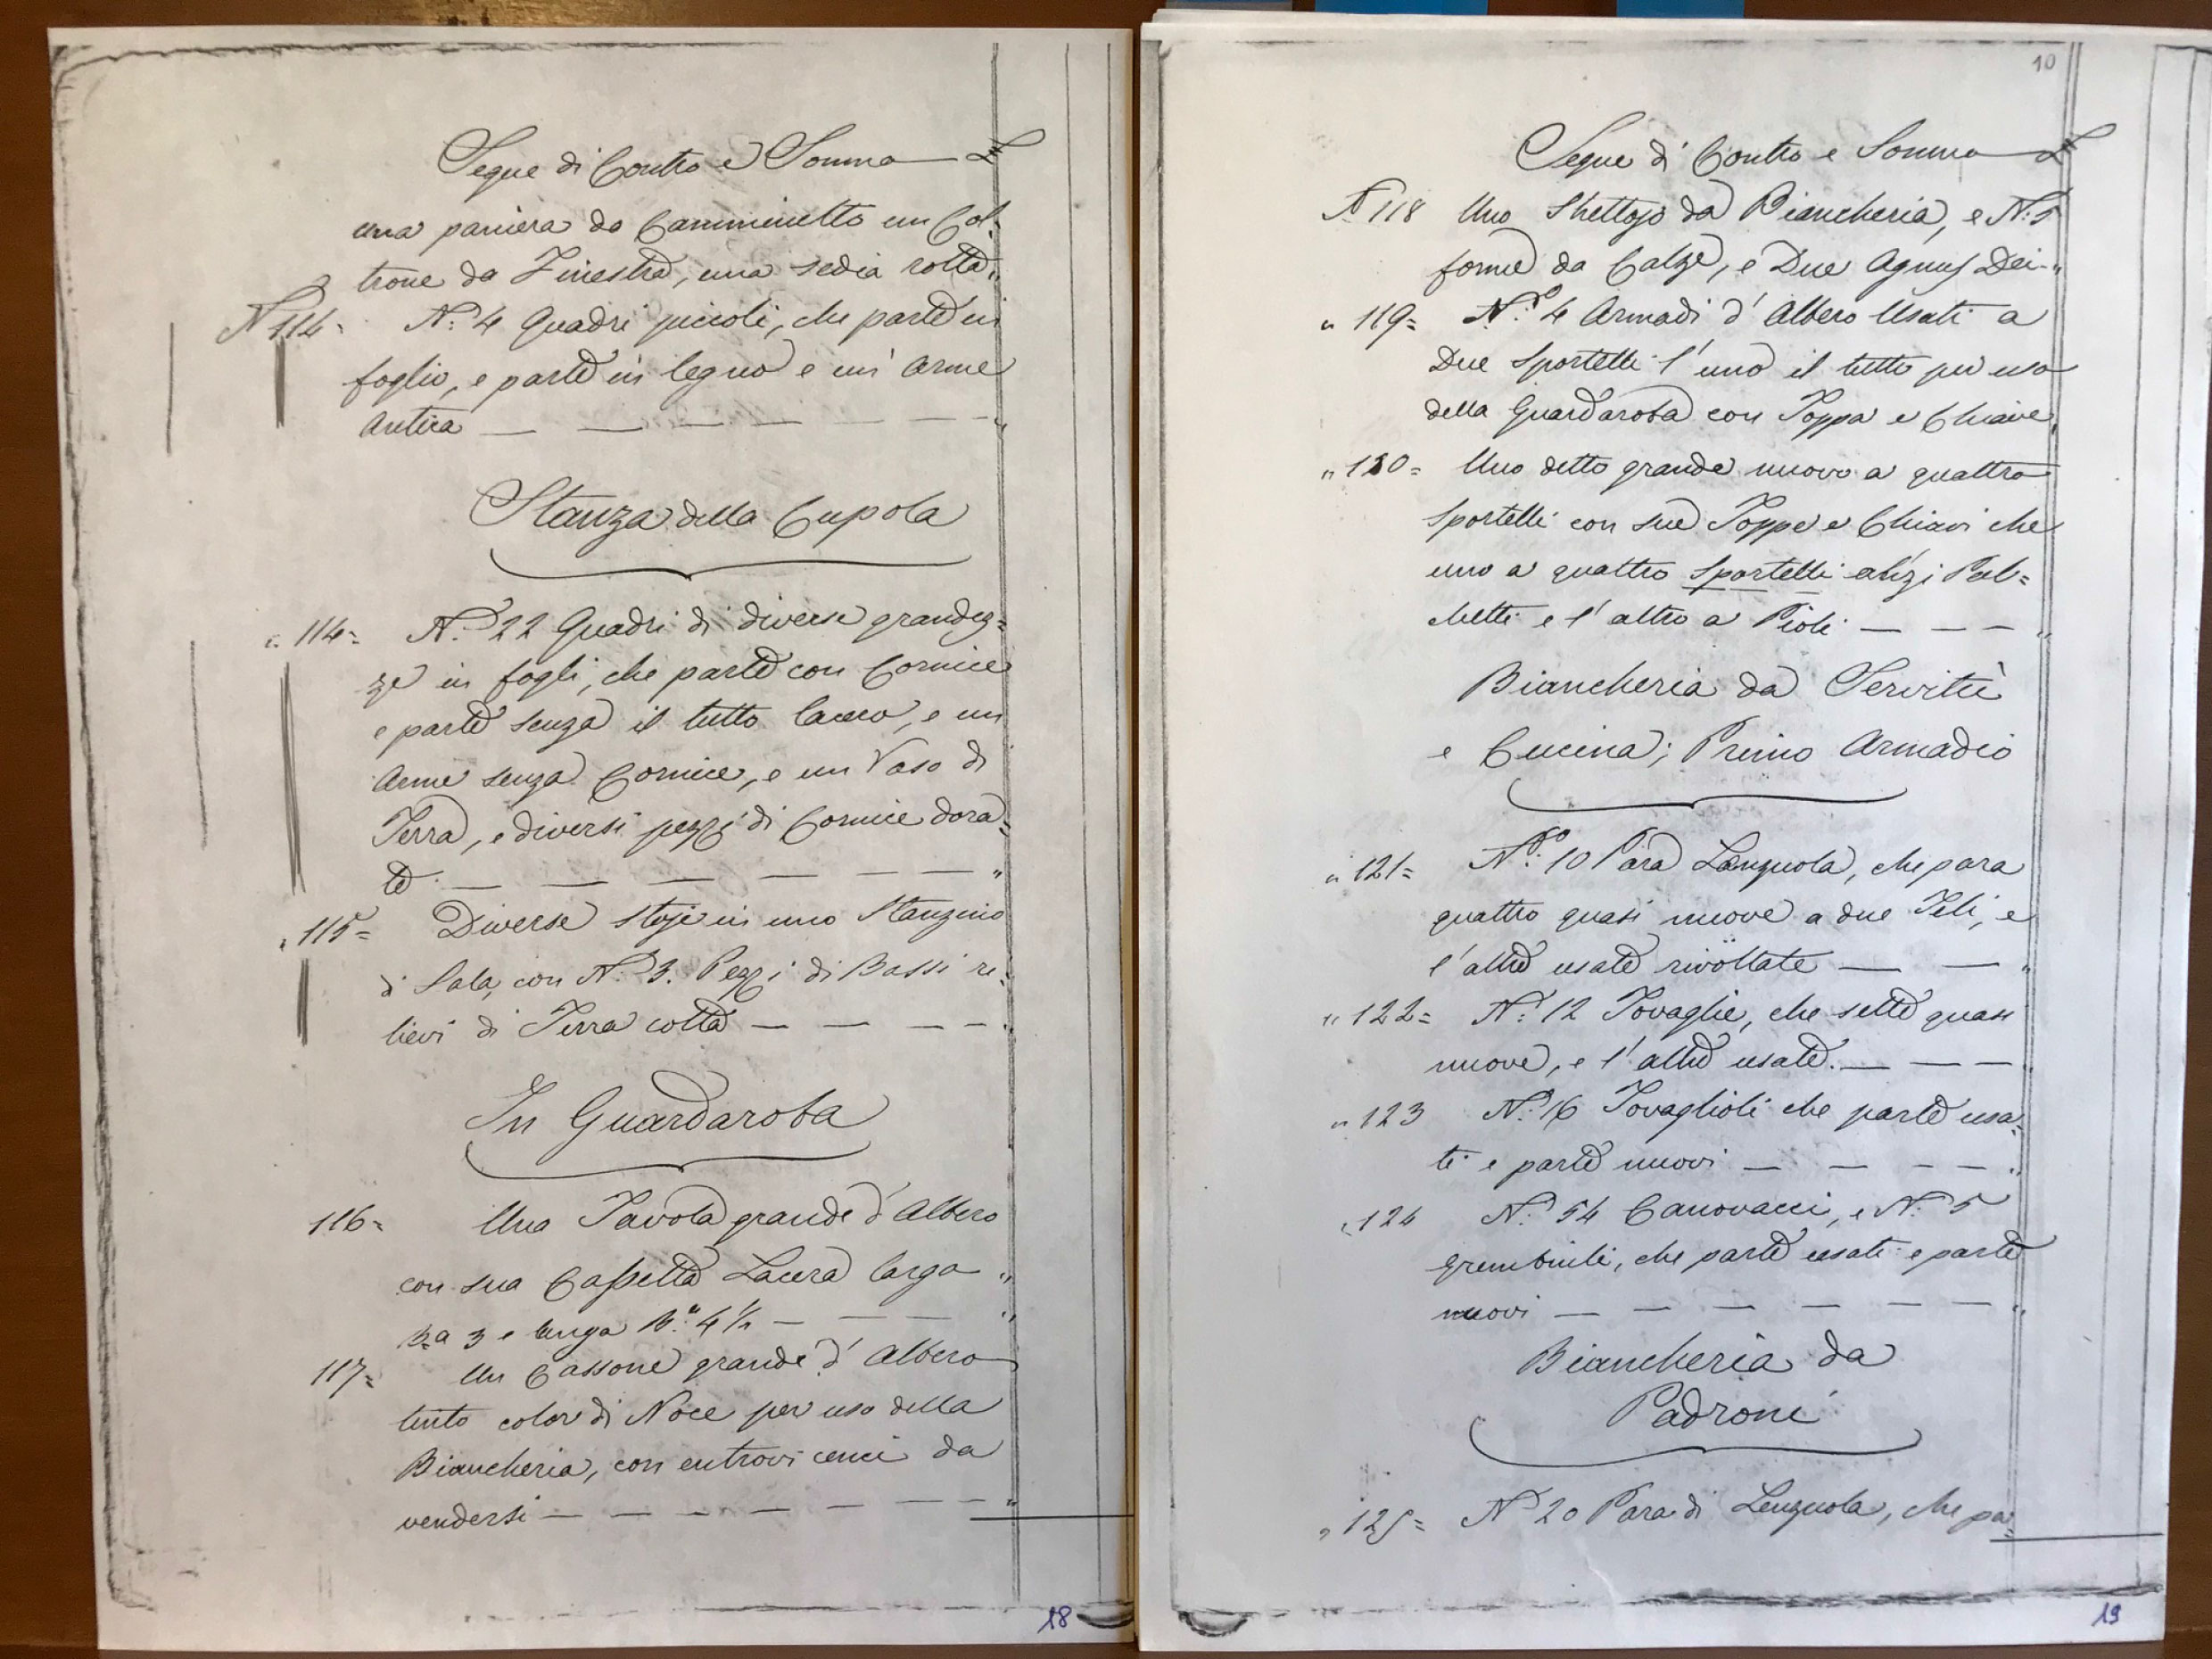 Segue di Contro e Somma £
una paniera da Camminetto un Col=
trone da Finestra, una sedia rotta "
N 114= N.º 4 Quadri piccoli, che parte in
foglio, e parte in legno e un' Arme
Antica — — — — — — "
Stanza della Cupola
" 114= N.º 22 Quadri di diverse grandez=
ze in fogli, che parte con Cornice
e parte senza il tutto lacero, e un
Arme senza Cornice, e un Vaso di
Terra, e diversi pezzi di Cornice dora=
te — — — — — — "
" 115= Diverse stoje in uno Stanzino
di Sala, con N.º 3. Pezzi di Bassi re=
lievi di Terra cotta — — — — "
In Guardaroba
116= Una Tavola grande d'Albero
con sua Cassetta Lacera larga "
B.a 3 e lunga B.a 4 ½ — — — "
117= Un Cassone grande d'Albero
tinto color di Noce per uso della
Biancheria, con entrovi cenci da
vendersi — — — — — — — "
18
10
Segue di Contro e Somma £
N 118 Uno Strettojo da Biancheria, e N.º 5
forme da Calze, e Due Agnus Dei "
" 119= N.º 4 Armadi d'Albero Usati a
Due Sportelli l'uno il tutto per uso
della Guardaroba con Toppa e Chiave "
" 120= Uno detto grande nuovo a quattro
Sportelli con sue Toppe e Chiavi che
uno a quattro Sportelli Pal=
chetti e l'altro a Pioli — — — "
Biancheria da Servitù
e Cucina; Primo Armadio
" 121= N.º 10 Para Lenzuola, che para
quattro quasi nuove a due Teli, e
l'altre usate rivoltate — — "
" 122= N.º 12 Tovaglie, che sette quasi
nuove, e l'altre usate. — — — "
" 123 N.º 16 Tovaglioli che parte usa=
ti e parte nuovi — — — — "
" 124 N.º 54 Canovacci, e N.º 5
Grembiuli, che parte usati e parte
nuovi — — — — — — "
Biancheria da
Padroni
" 125= N.º 20 Para di Lenzuola, che pa=
19